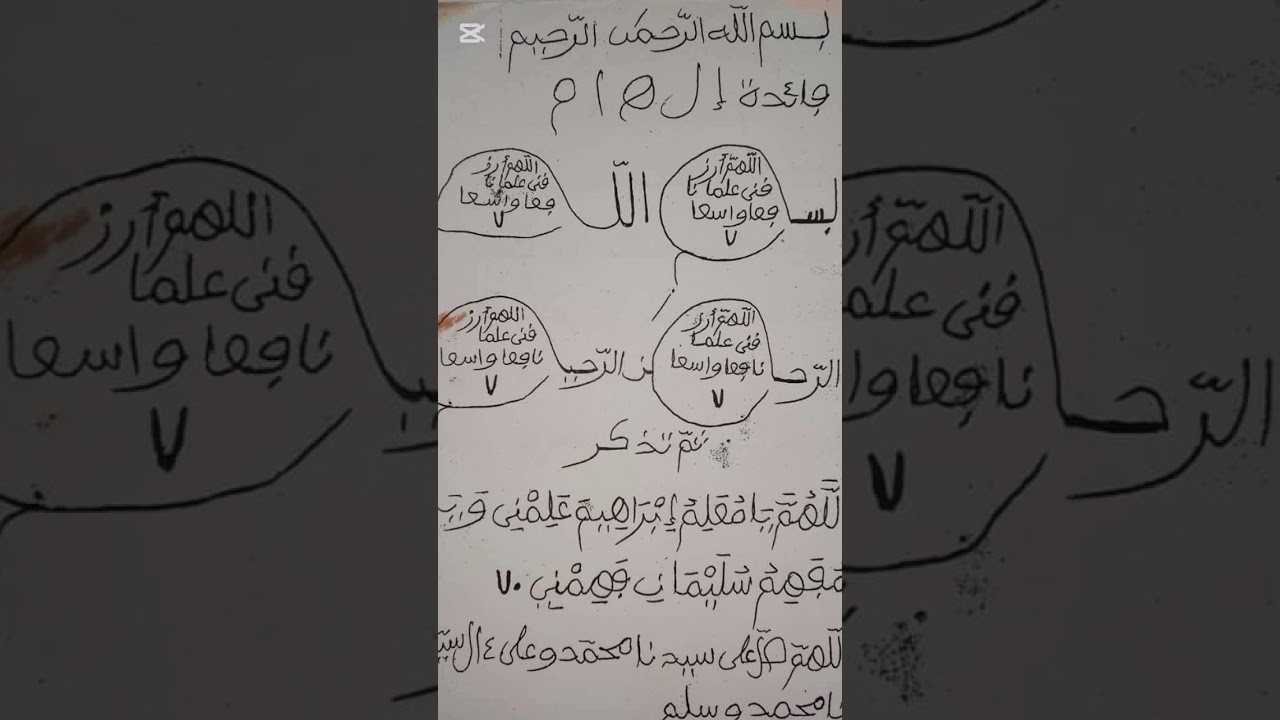 بسم الله الرحمن الرحيم
فائدة إ ل ه ا م
بسـ
اللهم أرز
فنى علما نا
فعا واسعا
٧
اللّـ
اللهم أرز
فنى علما نا
فعا واسعا
٧
الرّحـ
اللهمّ أرز
فنى علما
نافعا واسعا
٧
ـن الرّحيـ
اللهم أرز
فنى علما
نافعا واسعا
٧
ثمّ تذكر
للَّهُمَّ يَا مُعَلِمُ إِبْرَاهِيمَ عَلِمْنِى وَيَ
مُفَهِمُ سُلَيْمَانَ فَهِمْنِى ٧٠
للّهمّ صل على سيدنا محمّد وعلى ءال سيّ
نا محمد وسلم